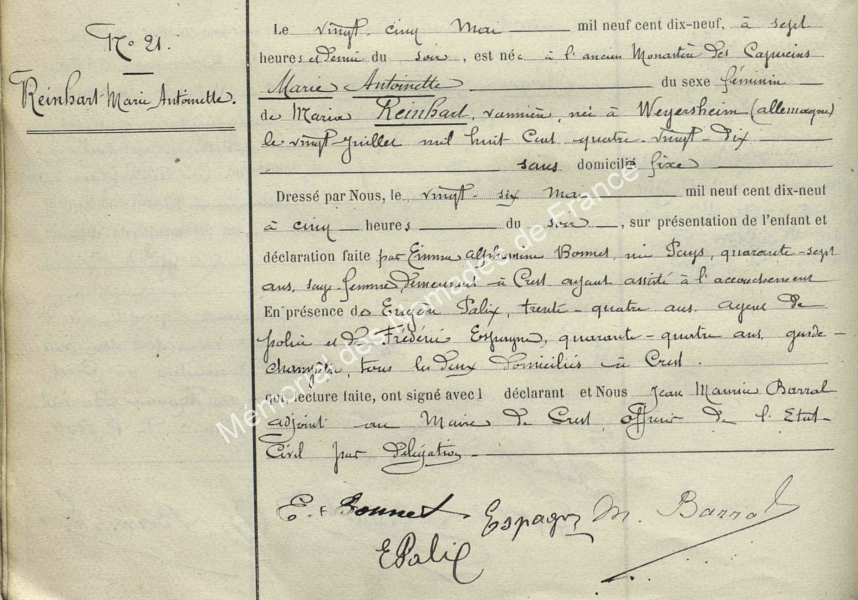 N° 21.
Reinhart Marie Antoinette.
Le vingt cinq Mai mil neuf cent dix-neuf, à sept
heures et demie du soir, est née à l'ancien Monastère des Capucins
Marie Antoinette du sexe féminin
de Maria Reinhart, vannière, née à Weyersheim (allemagne)
le vingt juillet mil huit Cent quatre vingt Dix
sans domicilié fixe
Dressé par Nous, le vingt six mai mil neuf cent dix-neuf
à cinq heures du soir, sur présentation de l'enfant et
déclaration faite par Emma Alphonsine Bonnet, née Pays, quarante-sept
ans, sage femme, demeurant à Crest ayant assisté à l'accouchement
En présence de Eugène Palix, trente-quatre ans, agent de
police et de Frédéric Espagne, quarante-quatre ans, garde-
champêtre, tous les deux domiciliés à Crest.
qui, lecture faite, ont signé avec l déclarant et Nous Jean Maurice Barral
adjoint au Maire de Crest, officier de l'Etat-
Civil par délégation
E. Bonnet Espagne M. Barral
E Palix
Mémorial des Nomades de France